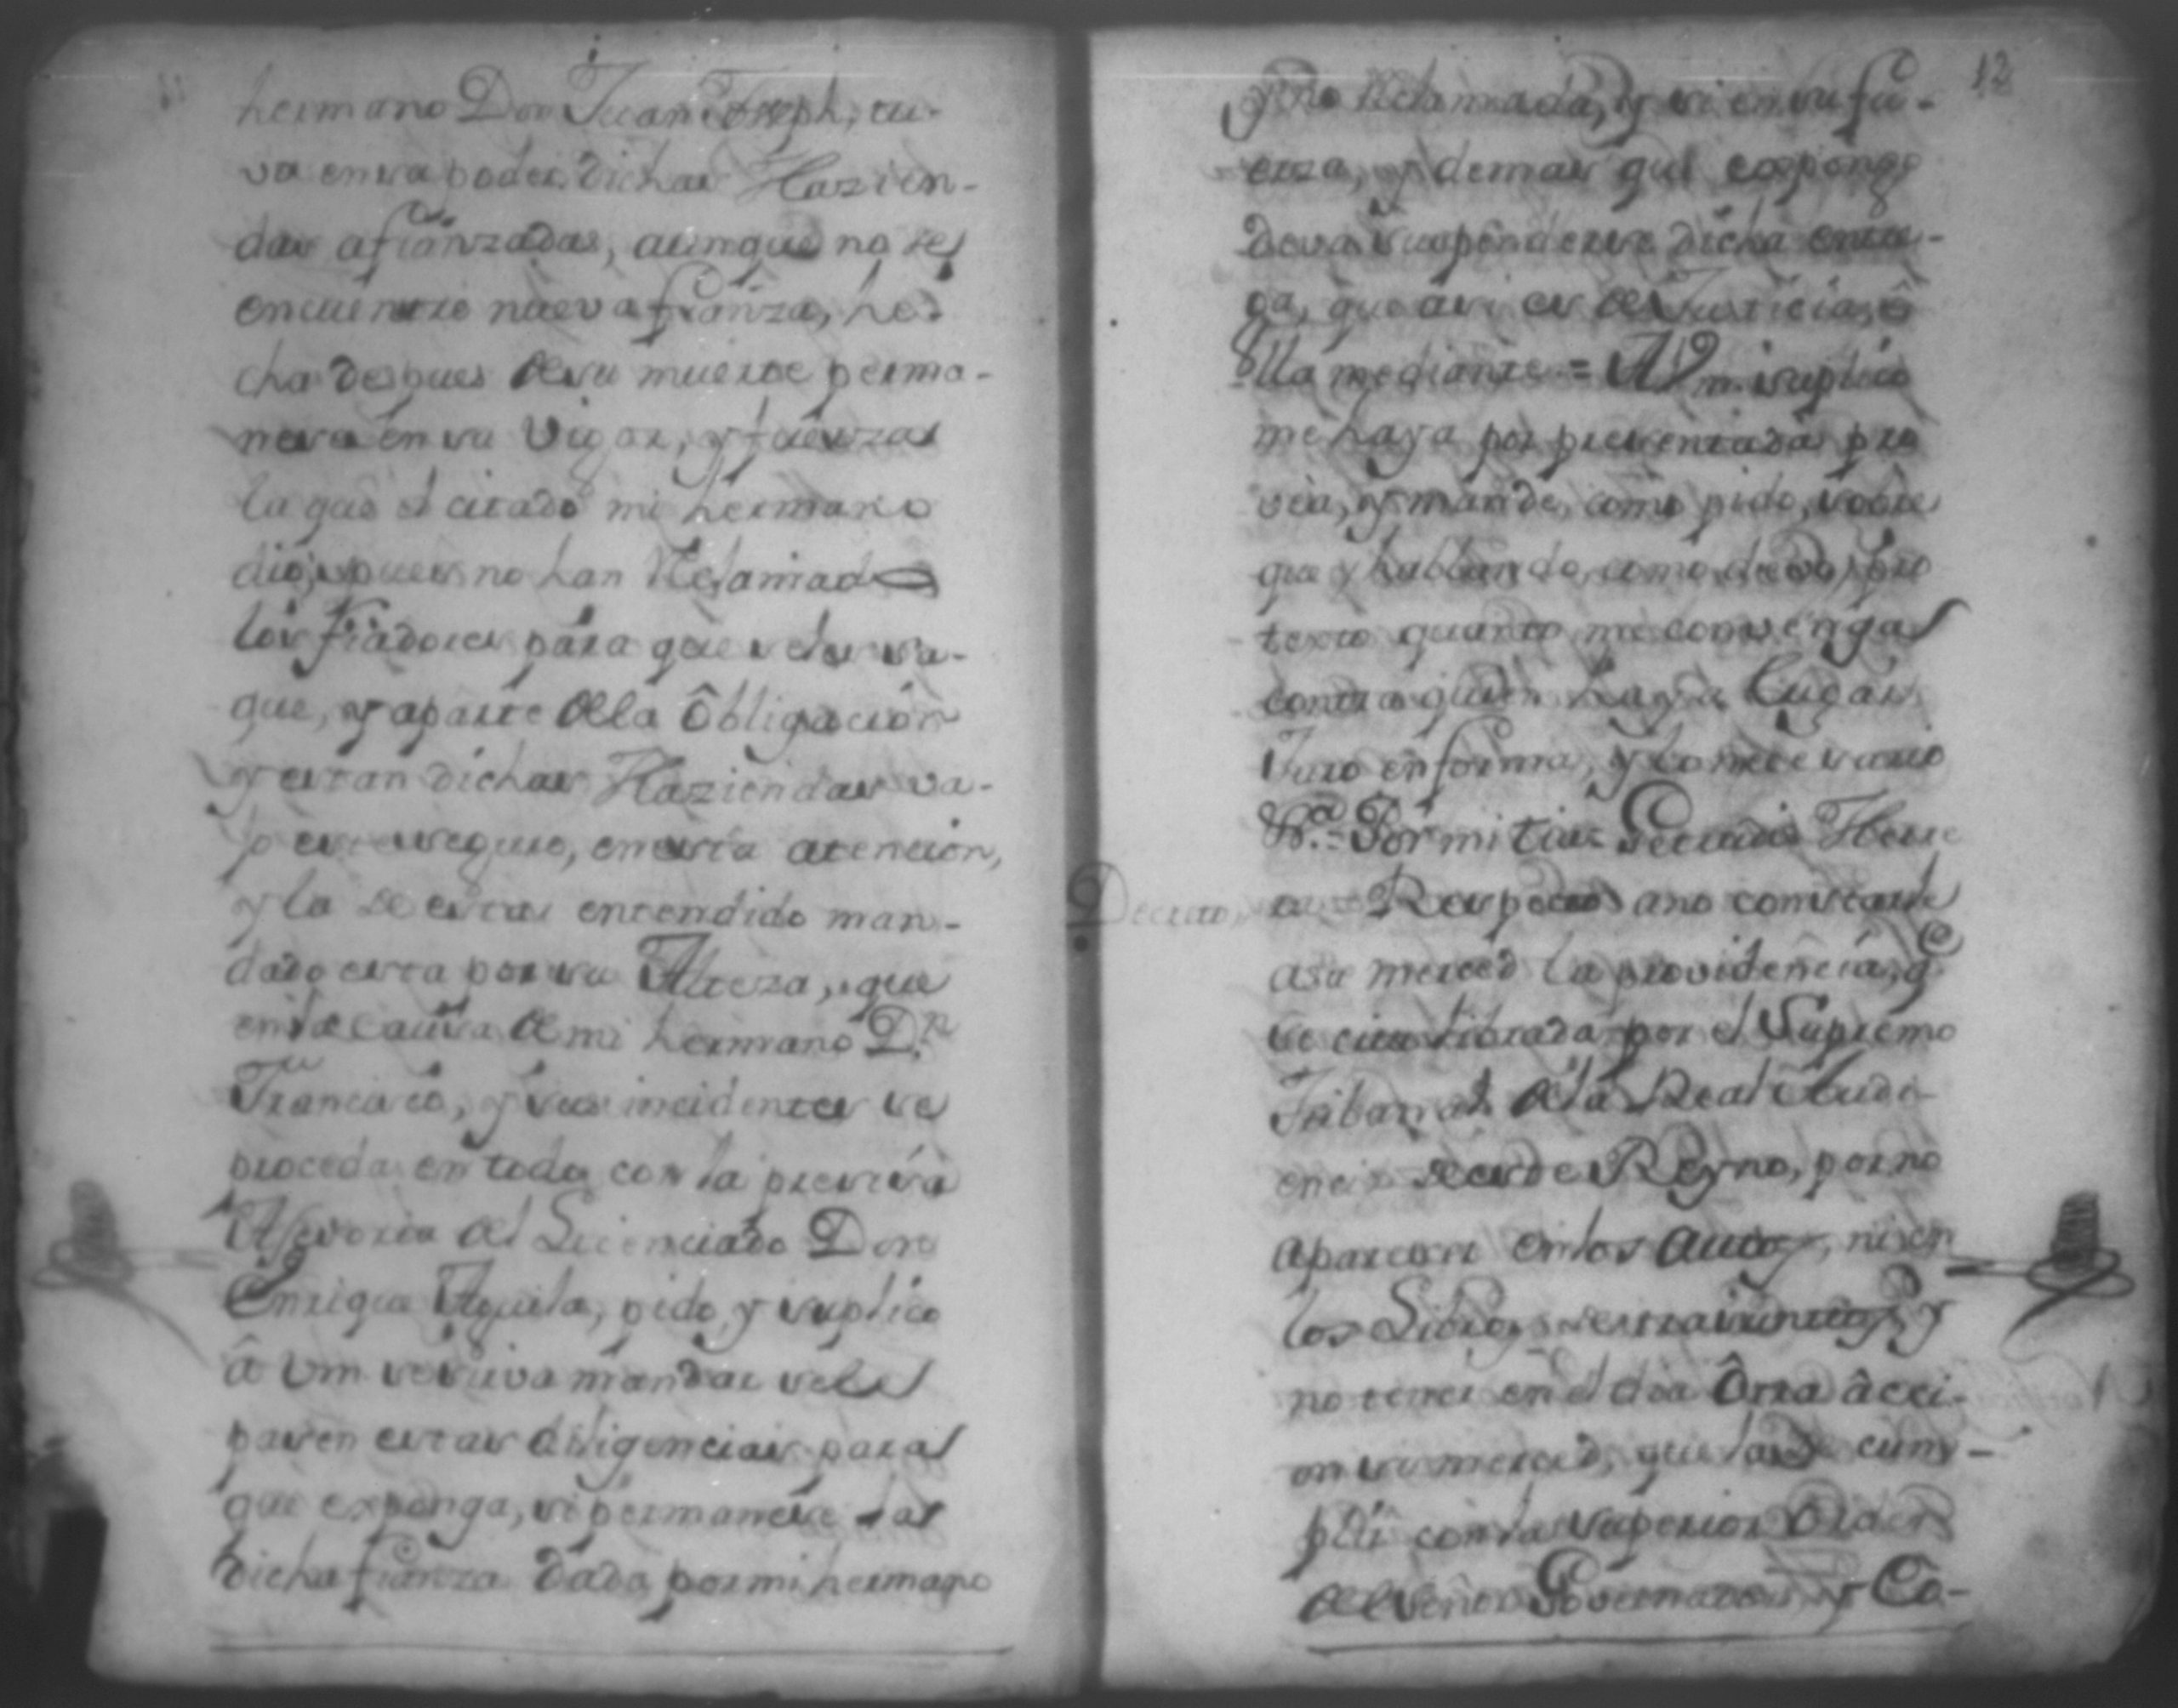 hermano Don Juan Joseph, tu-
vo en su poder dichas Hazien-
das afianzadas, aunque no se
encuentre nueva fianza, he-
cha despues de su muerte perma-
nese en su Vigor, y fuerza
la que el citado mi hermano
dio, pues no han Reclamado
los fiadores para que se les sa-
que, y aparte de la Obligacion
y estan dichas Haziendas va-
jo este seguro, en esta atencion,
y la de estar entendido man-
dado esta por su Alteza, que
en la causa de mi hermano D.n
Francisco, y sus incidentes se
proceda en todo con la presisa
Asesoria del Licenciado Don
Enrique Aguila, pido, y suplico
â Vm se sirva mandar se le
pasen estas diligencias para
que exponga, si permanese
dicha fianza dada por mi hermano
12
y no Reclamada, y si en su fu-
erza, y demas que exponga
deva suspenderse dicha entre-
ga, que asi es de Justicia, ê
Ella mediante = A Vm. suplico
me haya por presentada pro
vea, y mande, como pido, sobre
que hablando como devo, pro
texto quanto me convenga
contra quien haya Lugar
Juro en forma, y lo nesesario
&.a Por mi tia Gertrudis Herre
Decreto
ra = Respecto ano constarle
asu merced la providencia, q.e
se cita librada por el Supremo
Tribunal de la Real Audi-
encia de este Reyno, por no
aparecer en los autos, ni en
los Libros de estra
no tener en el dia Ôtra âcci-
on su merced, que la de cum-
plir con la superior Orden
del Señor Governador, y Co-